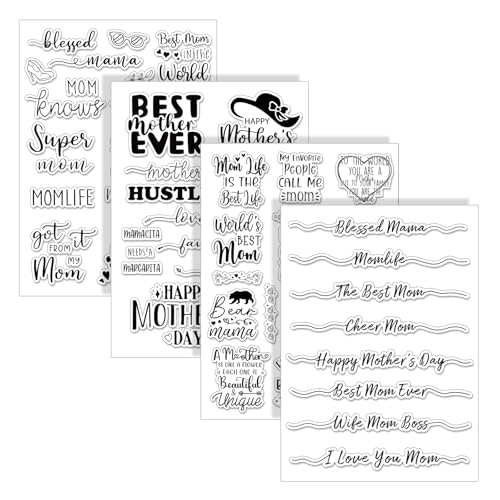 blessed
mama
Best Mom
IN THE
World
MOM
knows
Super
mom
MOMLIFE
got it
FROM
MY
Mom
BEST
mother
EVER
HAPPY
Mother's
mother
HUSTL
love
MAMACITA
NEEDS A
MARGARITA
HAPPY
MOTHE
DAY
Mom Life
IS THE
Best Life
MY FAVORITE
PEOPLE
CALL ME
mom
TO THE WORLD
YOU ARE A
BUT TO YOUR FAMILY
YOU ARE THE
World's
BEST
Mom
Bear
mama
A Mother
IS LIKE A FLOWER
EACH ONE IS
Beautiful
&
Unique
Blessed Mama
Momlife
The Best Mom
Cheer Mom
Happy Mother's Day
Best Mom Ever
Wife Mom Boss
I Love You Mom